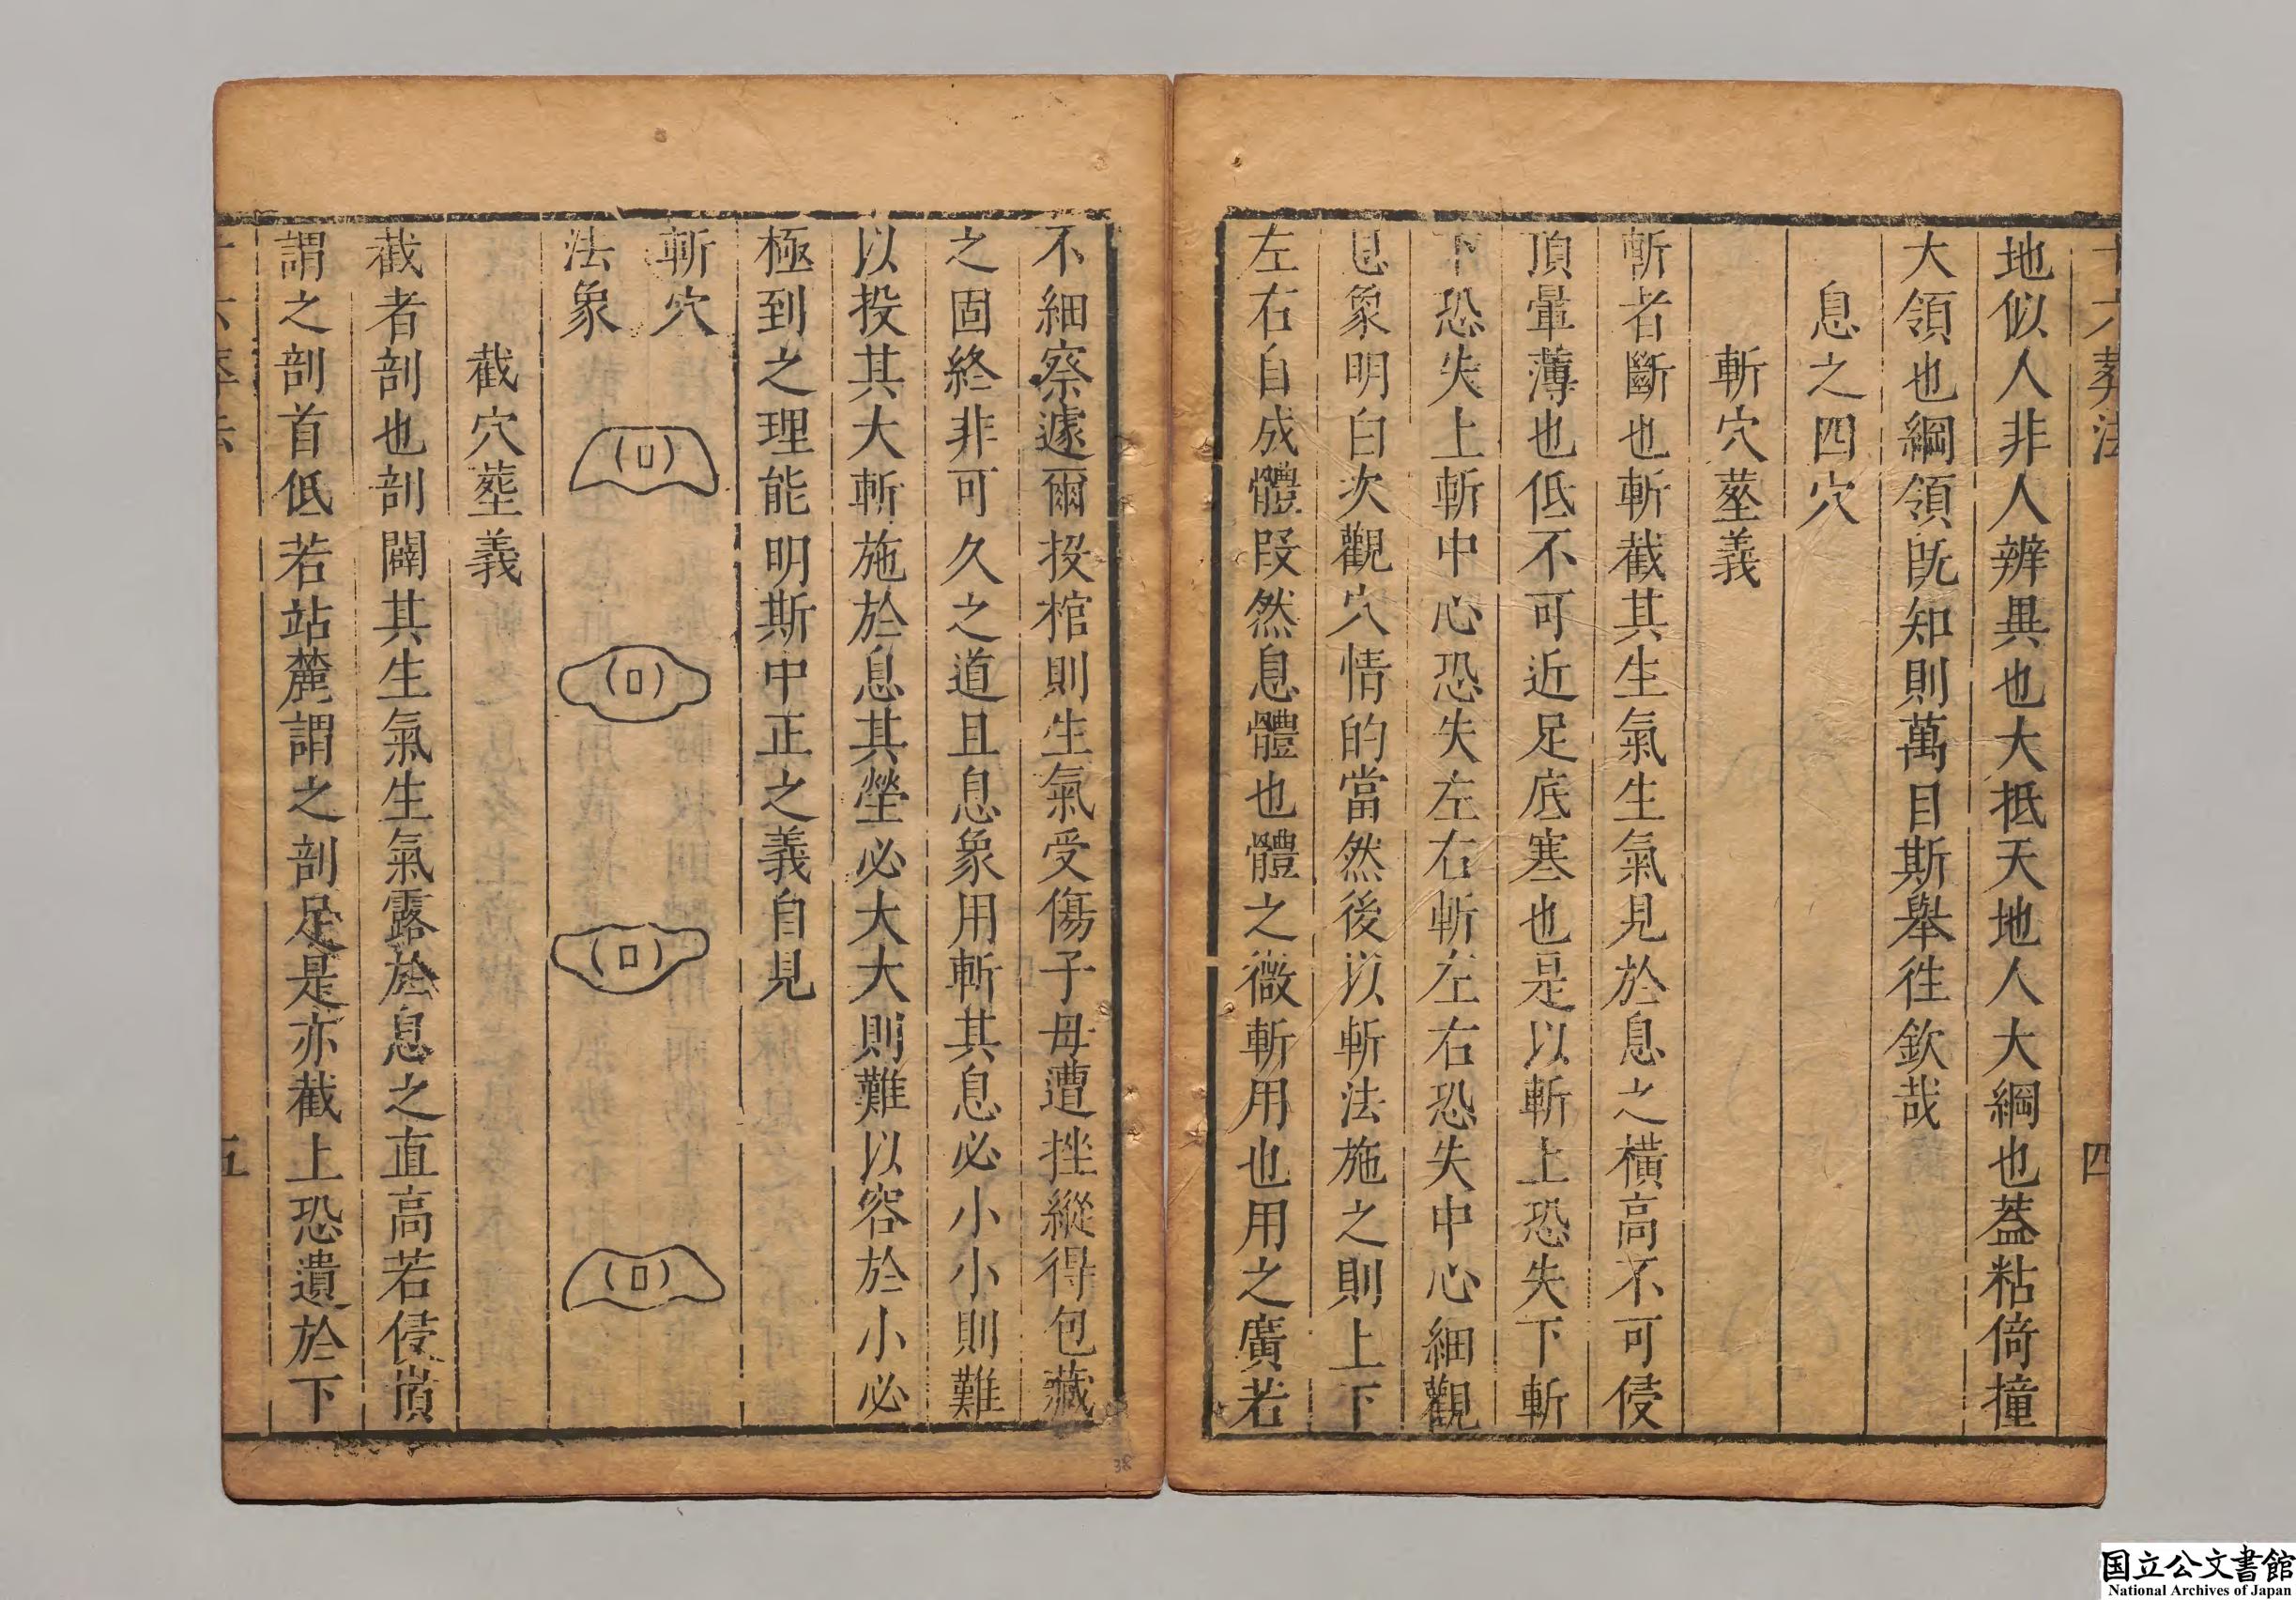 十六葬法 四
地似人非人辨異也大抵天地人大綱也蓋粘倚撞
大領也綱領既知則萬目斯舉徃欽哉
息之四穴
斬穴塟義
斬者斷也斬截其生氣生氣見於息之橫高不可侵
頂暈薄也低不可近足底寒也是以斬上恐失下斬
下恐失上斬中心恐失左右斬左右恐失中心細觀
息象明白次觀穴情的當然後以斬法施之則上下
左右自成體段然息體也體之微斬用也用之廣若
不細察遽爾投棺則生氣受傷子母遭挫縱得包藏
之固終非可久之道且息象用斬其息必小小則難
以投其大斬施於息其塋必大大則難以容於小必
極到之理能明斯中正之義自見
斬穴
法象
截穴塟義
截者剖也剖闢其生氣生氣露於息之直高若侵嵿
謂之剖首低若站麓謂之剖足是亦截上恐遺於下
十六葬法 五
国立公文書館
National Archives of Japan
38